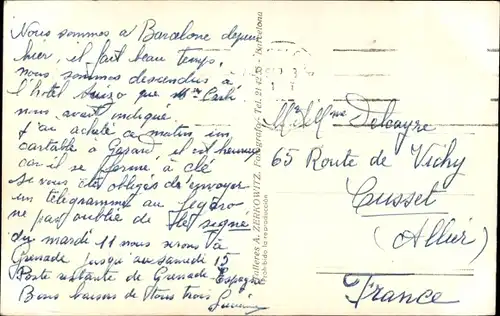 Nous sommes à Barcelone depuis
hier, il fait beau temps,
nous sommes descendus à
l'hotel Suizo que Mme
nous avait indiqué.
J'ai acheté ce matin un
cartable à Gérard, il est heureux
car il se ferme à clé
Si vous êtes obligés d'envoyer
un télégramme au
ne pas oublié de signé
du mardi 11 nous serons à
Grenade jusqu'au samedi 15
Poste restante de Grenade Espagne
Bons baisers de tous trois
Talleres A. ZERKOWITZ. Fotografía - Tel. 21 42 33 - Barcelona
Prohibida la reproducción
Mr & Mme Delcayre
65 Route de Vichy
Cusset
(Allier)
France